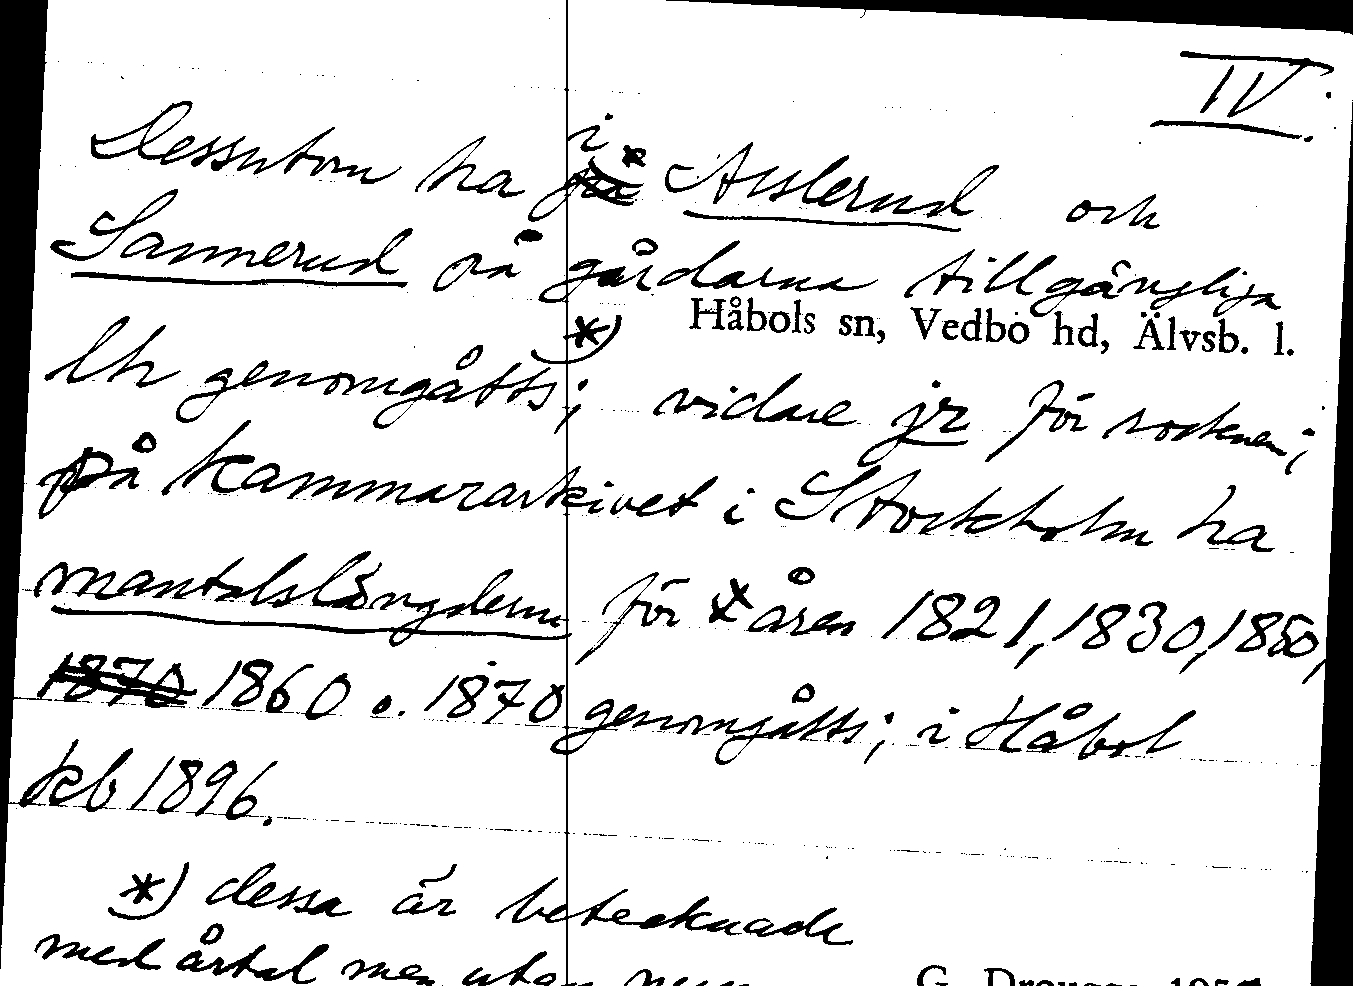 IV.
Dessutom ha i Asslerud och
Sannerud på gårdarna tillgängliga
Håbols sn, Vedbo hd, Älvsb. l.
lh genomgåtts *); vidare jr för socknen;
på Kammararkivet i Stockholm ha
mantalslängderna för åren 1821, 1830, 1850,
1870 1860 o. 1870 genomgåtts; i Håbol
kb 1896.
*) dessa är betecknade
med årtal men utan
G.